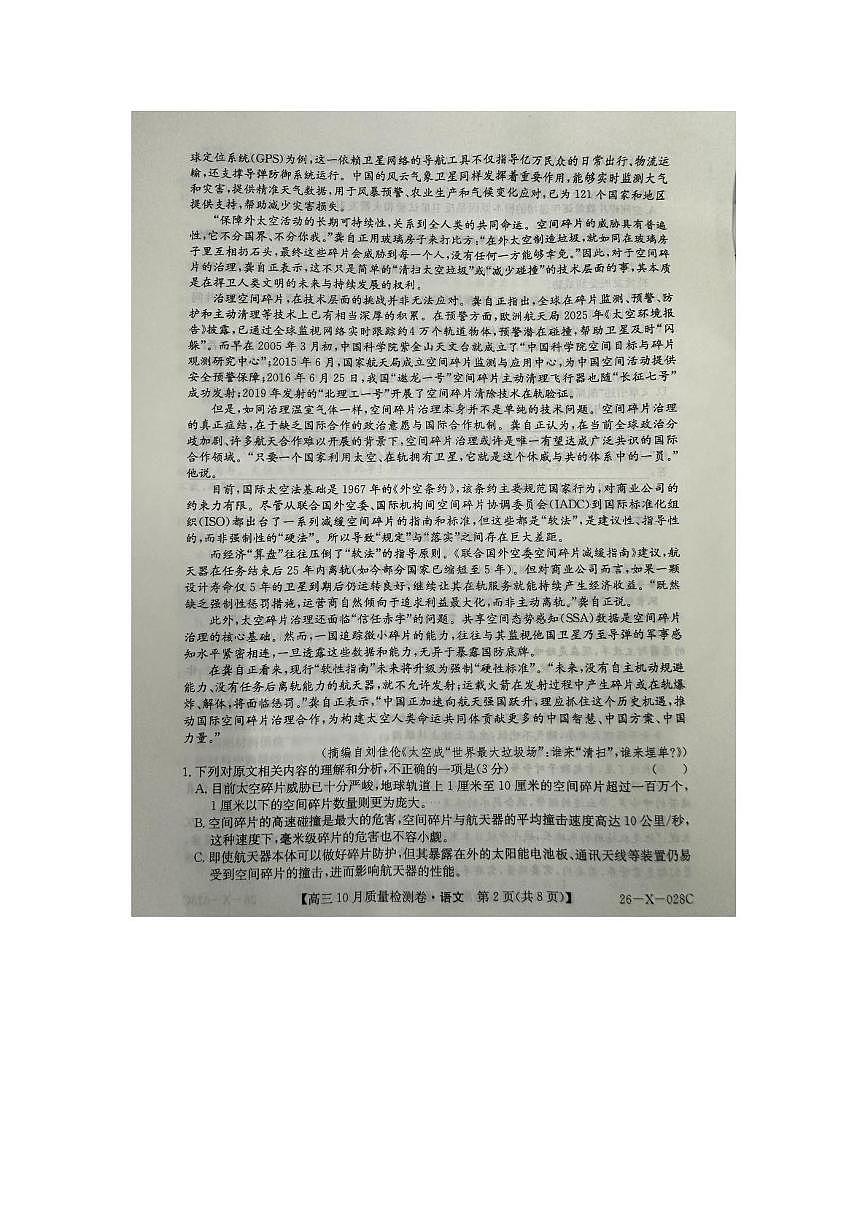 球定位系统(GPS)为例,这一依赖卫星网络的导航工具不仅指导亿万民众的日常出行、物流运
输,还支撑导弹防御系统运行。中国的风云气象卫星同样发挥着重要作用,能够实时监测大气
和灾害,提供精准天气数据,用于风暴预警、农业生产和气候变化应对,已为 121 个国家和地区
提供支持,帮助减少灾害损失。
“保障外太空活动的长期可持续性,关系到全人类的共同命运。空间碎片的威胁具有普遍
性,它不分国界、不分你我。”龚自正用玻璃房子来打比方:“在外太空制造垃圾,就如同在玻璃房
子里互相扔石头,最终这些碎片会威胁到每一个人,没有任何一方能够幸免。”因此,对于空间碎
片的治理,龚自正表示,这不只是简单的“清扫太空垃圾”或“减少碰撞”的技术层面的事,其本质
是在捍卫人类文明的未来与持续发展的权利。
治理空间碎片,在技术层面的挑战并非无法应对。龚自正指出,全球在碎片监测、预警、防
护和主动清理等技术上已有相当深厚的积累。在预警方面,欧洲航天局 2025 年《太空环境报
告》披露,已通过全球监视网络实时跟踪约4 万个轨道物体,预警潜在碰撞,帮助卫星及时“闪
躲”。而早在 2005 年 3 月初,中国科学院紫金山天文台就成立了“中国科学院空间目标与碎片
观测研究中心”;2015 年 6 月,国家航天局成立空间碎片监测与应用中心,为中国空间活动提供
安全预警保障;2016 年 6 月 25 日,我国“遨龙一号”空间碎片主动清理飞行器也随“长征七号”
成功发射;2019 年发射的“北理工一号”开展了空间碎片清除技术在轨验证。
但是,如同治理温室气体一样,空间碎片治理本身并不是单纯的技术问题。空间碎片治理
的真正症结,在于缺乏国际合作的政治意愿与国际合作机制。龚自正认为,在当前全球政治分
歧加剧、许多航天合作难以开展的背景下,空间碎片治理或许是唯一有望达成广泛共识的国际
合作领域。“只要一个国家利用太空、在轨拥有卫星,它就是这个休戚与共的体系中的一员。”
他说。
目前,国际太空法基础是 1967 年的《外空条约》,该条约主要规范国家行为,对商业公司的
约束力有限。尽管从联合国外空委、国际机构间空间碎片协调委员会(IADC)到国际标准化组
织(ISO)都出台了一系列减缓空间碎片的指南和标准,但这些都是“软法”,是建议性、指导性
的,而非强制性的“硬法”。所以导致“规定”与“落实”之间存在巨大差距。
而经济“算盘”往往压倒了“软法”的指导原则。《联合国外空委空间碎片减缓指南》建议,航
天器在任务结束后 25 年内离轨(如今部分国家已缩短至 5 年)。但对商业公司而言,如果一颗
设计寿命仅 5 年的卫星到期后仍运转良好,继续让其在轨服务就能持续产生经济收益。“既然
缺乏强制性惩罚措施,运营商自然倾向于追求利益最大化,而非主动离轨。”龚自正说。
此外,太空碎片治理还面临“信任赤字”的问题。共享空间态势感知(SSA)数据是空间碎片
治理的核心基础。然而,一国追踪微小碎片的能力,往往与其监视他国卫星乃至导弹的军事感
知水平紧密相连,一旦透露这些数据和能力,无异于暴露国防底牌。
在龚自正看来,现行“软性指南”未来将升级为强制“硬性标准”。“未来,没有自主机动规避
能力、没有任务后离轨能力的航天器,就不允许发射;运载火箭在发射过程中产生碎片或在轨爆
炸、解体,将面临惩罚。”龚自正表示,“中国正加速向航天强国跃升,理应抓住这个历史机遇,推
动国际空间碎片治理合作,为构建太空人类命运共同体贡献更多的中国智慧、中国方案、中国
力量。”
(摘编自刘佳伦《太空成“世界最大垃圾场”:谁来“清扫”,谁来埋单?》)
1. 下列对原文相关内容的理解和分析,不正确的一项是(3 分) ( )
A. 目前太空碎片威胁已十分严峻,地球轨道上 1 厘米至 10 厘米的空间碎片超过一百万个,
1 厘米以下的空间碎片数量则更为庞大。
B. 空间碎片的高速碰撞是最大的危害,空间碎片与航天器的平均撞击速度高达 10 公里/秒,
这种速度下,毫米级碎片的危害也不容小觑。
C. 即使航天器本体可以做好碎片防护,但其暴露在外的太阳能电池板、通讯天线等装置仍易
受到空间碎片的撞击,进而影响航天器的性能。
【高三 10 月质量检测卷·语文 第 2 页(共 8 页)】 26-X-028C